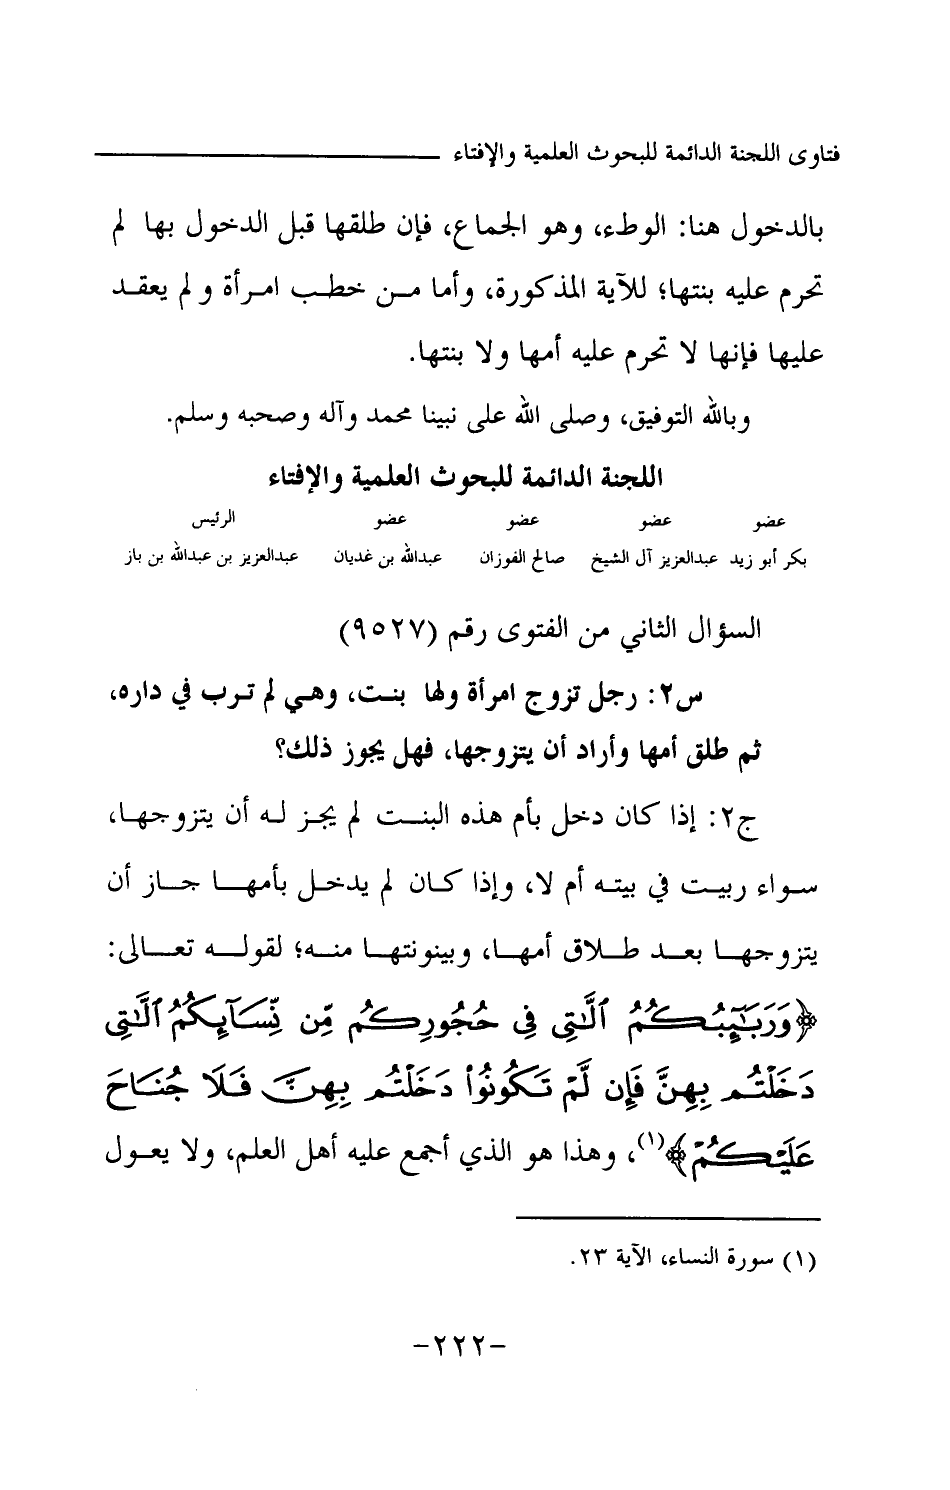 فتاوى اللجنة الدائمة للبحوث العلمية والإفتاء
بالدخول هنا: الوطء، وهو الجماع، فإن طلقها قبل الدخول بها لم
تحرم عليه بنتها؛ للآية المذكورة، وأما من خطب امرأة ولم يعقد
عليها فإنها لا تحرم عليه أمها ولا بنتها.
وبالله التوفيق، وصلى الله على نبينا محمد وآله وصحبه وسلم.
اللجنة الدائمة للبحوث العلمية والإفتاء
عضو عضو عضو عضو الرئيس
بكر أبو زيد عبدالعزيز آل الشيخ صالح الفوزان عبدالله بن غديان عبدالعزيز بن عبدالله بن باز
السؤال الثاني من الفتوى رقم (٩٥٢٧)
س٢: رجل تزوج امرأة ولها بنت، وهي لم ترب في داره،
ثم طلق أمها وأراد أن يتزوجها، فهل يجوز ذلك؟
ج٢: إذا كان دخل بأم هذه البنت لم يجز له أن يتزوجها،
سواء ربيت في بيته أم لا، وإذا كان لم يدخل بأمها جاز أن
يتزوجها بعد طلاق أمها، وبينونتها منه؛ لقوله تعالى:
﴿وَرَبَـٰٓئِبُكُمُ ٱلَّـٰتِى فِى حُجُورِكُم مِّن نِّسَآئِكُمُ ٱلَّـٰتِى
دَخَلْتُم بِهِنَّ فَإِن لَّمْ تَكُونُوا۟ دَخَلْتُم بِهِنَّ فَلَا جُنَاحَ
عَلَيْكُمْ﴾(١)، وهذا هو الذي أجمع عليه أهل العلم، ولا يعول
(١) سورة النساء، الآية ٢٣.
-٢٢٢-